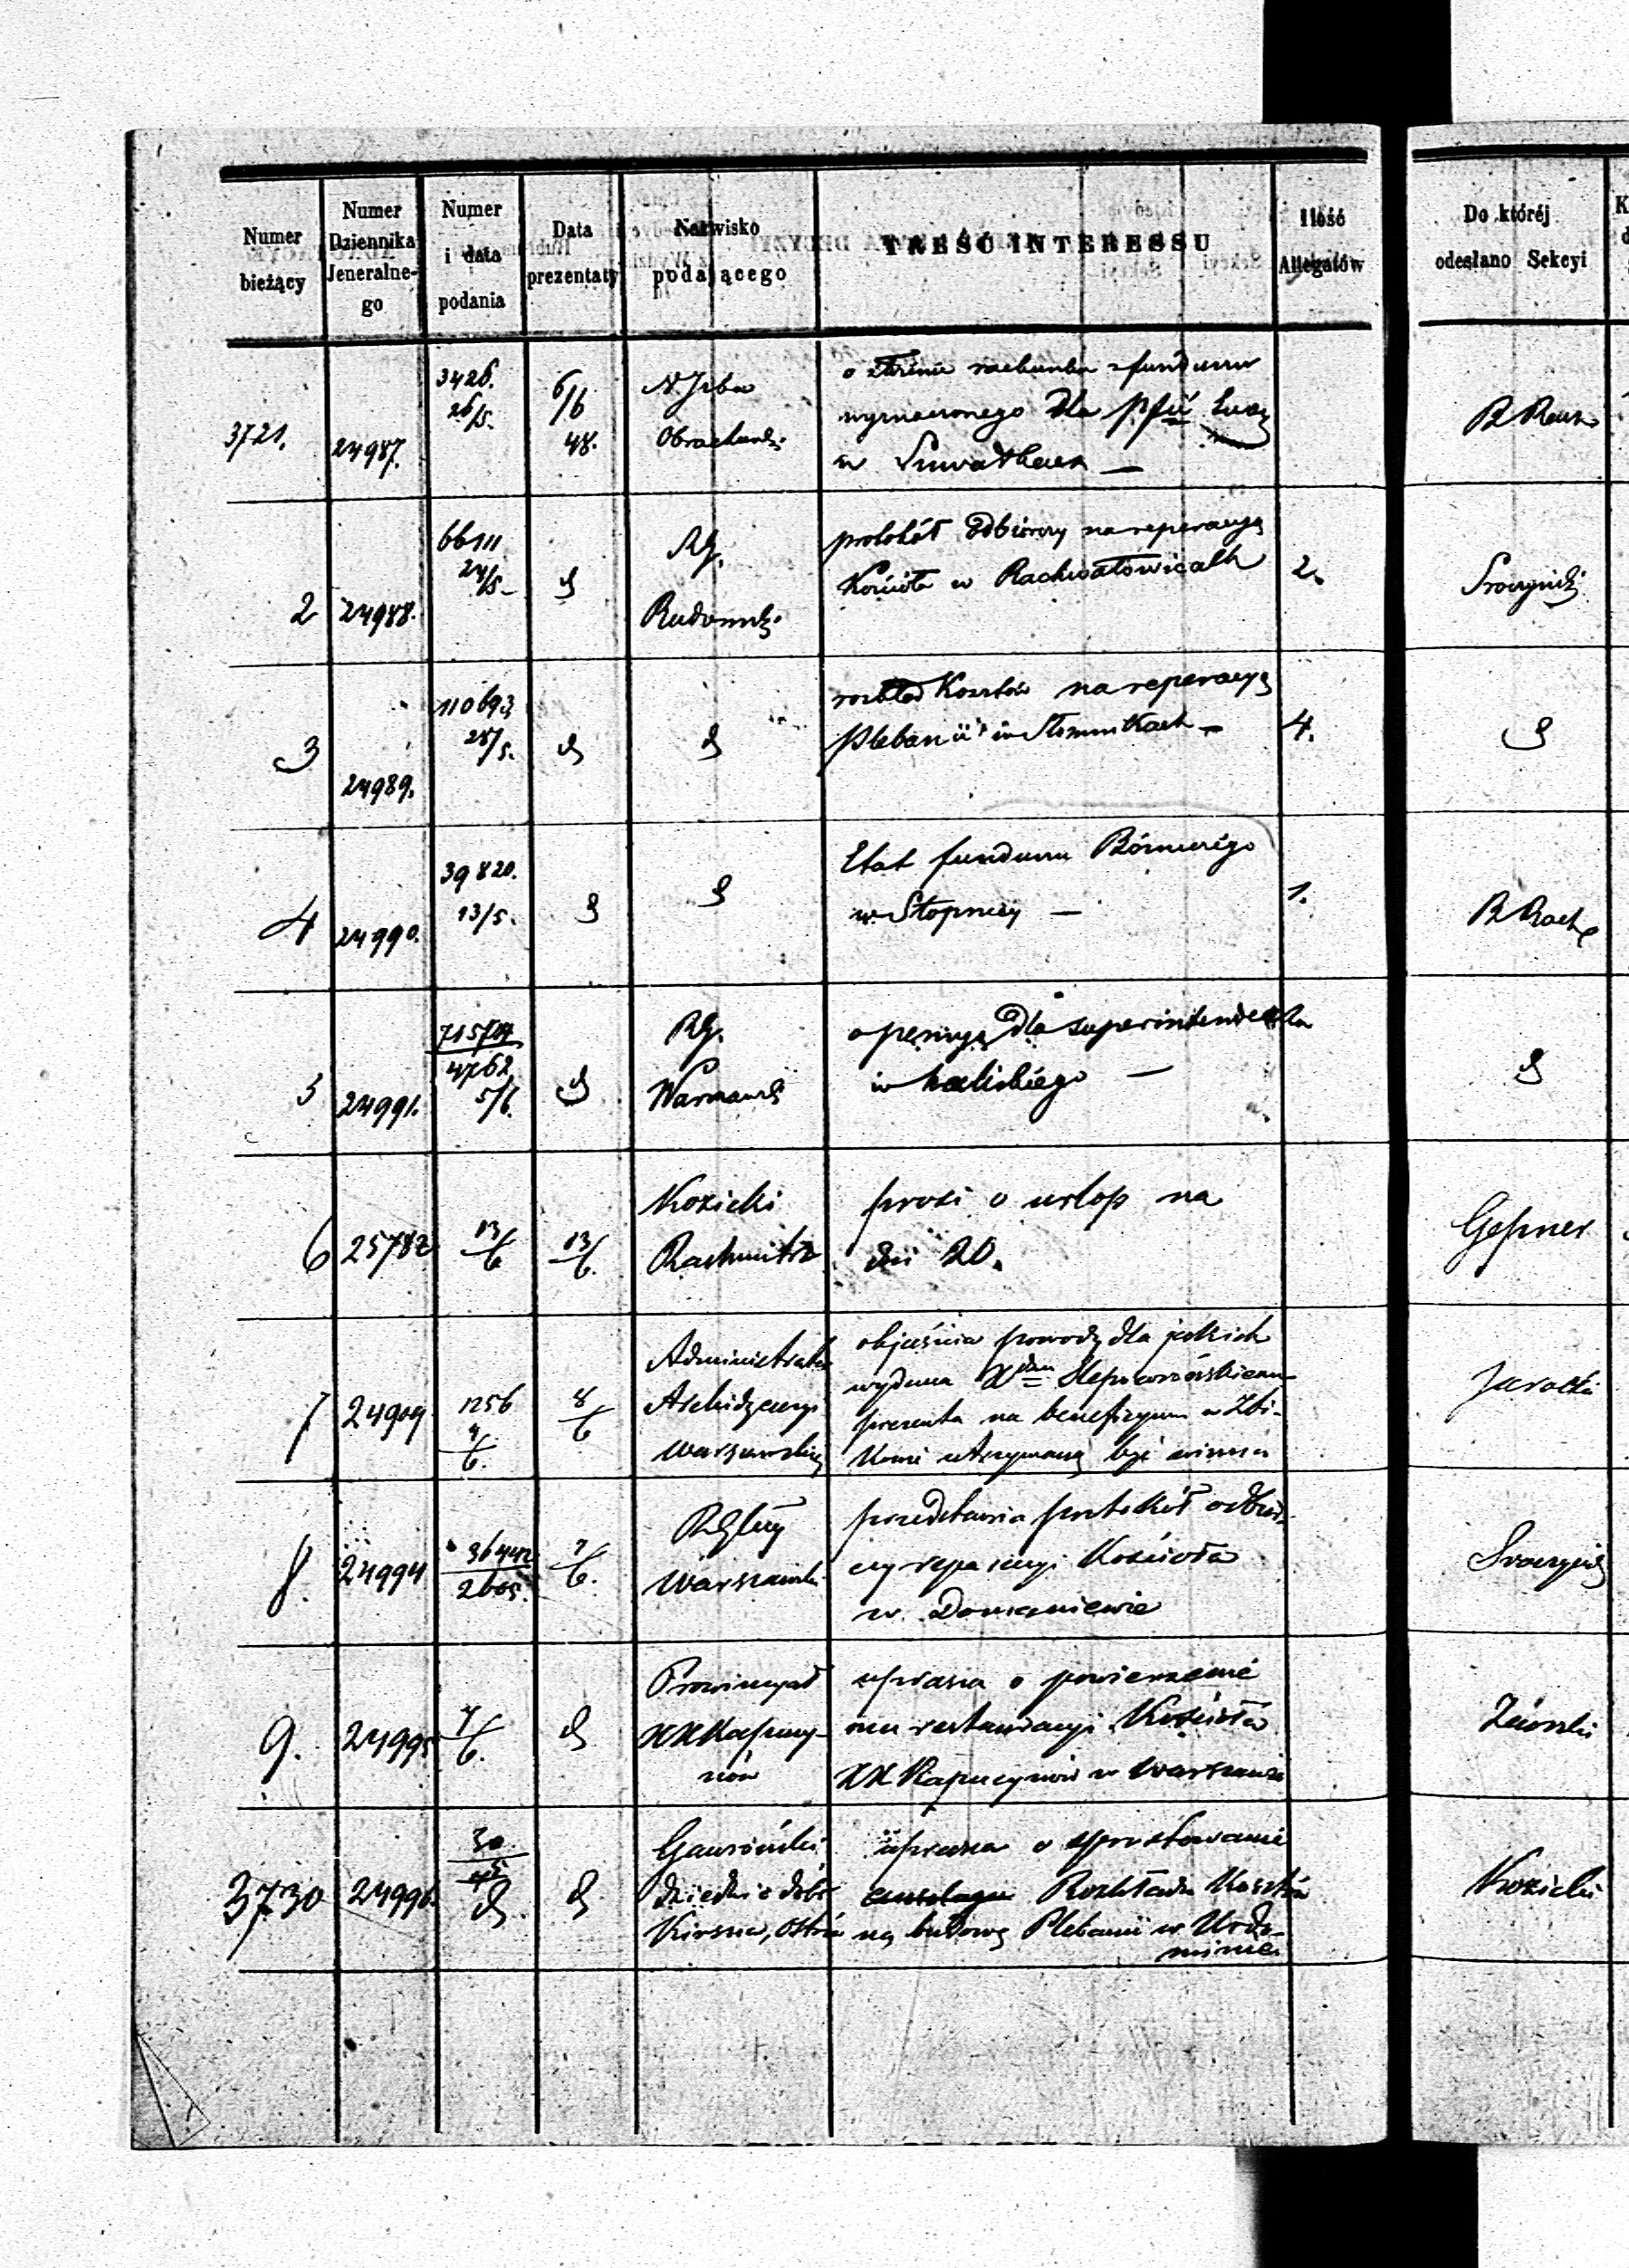 Numer bieżący | Numer Dziennika Jeneralne-go | Numer i data podania | Data prezentaty | Nazwisko podającego | TREŚĆ INTERESSU | Ilość Allegatów | Do któréj odesłano Sekcyi
3721. | 24987. | 3426. 26/5. | 6/6 48. | N Izba
Obrachunk. | o złożenie rachunku z funduszu
wyznaczonego dla
w | R Rach
2 | 24988. | 66111 24/5 | d | RG.
Radomsk. | protokół odbiorczy na reperacyą
Kościoła w Rachwałowicach | 2.
3 | 24989. | 110693 25/5. | d | d | rozkład Kosztów na reperacyą
Plebanii w Słomnikach — | 4. | d
4 | 24990. | 39820. 13/5. | d | d | Etat funduszu Bóżniczégo
w Stopnicy — | 1. | R Rach
5 | 24991. | 4762 5/6. | d | RG.
Warszawsk | o pensyą dla superintendenta
kaliskiégo — | d
6 | 25782 | 13/6 | 13/6. | Kozicki
Rachmistrz | prosi o urlop na
dni 20. | Gepner
7 | 24909 | 1256 4/6. | 8/6 | Administrator
Archidyecezyi
Warszawskiej | objaśnia powody dla jakich
wydana Xdzu Ślepowrońskiemu
prezenta na beneficyum w Zbi-
utrzymaną być winna
8. | 24994 | 36442 2605. | 7/6. | RGlny
Warszawski | przedstawia protokół odbior-
czy reparacyi Kościoła
w Domaniewie
9. | 24995 | 7/6. | d | Prowincyał
XX Kapucy-
nów | uprasza o powierzenie
mu restauracyi Kościoła
XX Kapucynów w Warszawie
3730 | 24996. | 30/5 | d | Gawroński
dziedzic dóbr
Kirsna, Ostrów | uprasza o sprostowanie
Rozkładu Kosztów
na budowę Plebanii w Urdo-
minie | Kozicki